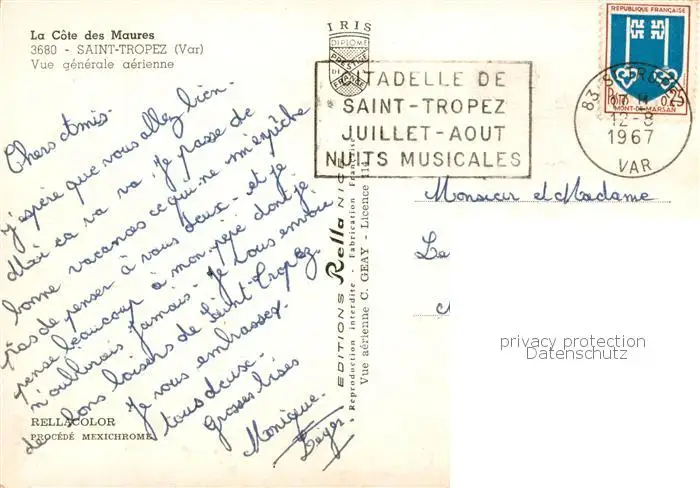 La Côte des Maures
3680 - SAINT-TROPEZ (Var)
Vue générale aérienne
Chers Amis -
J'espère que vous allez bien -
Moi ca va va. Je passe de
bonne vacances ce qui ne m'empêche
pas de penser à vous deux - et je
pense beaucoup à mon pépé dont je
n'oublirais jamais - Je vous envoie
de bons loisirs de Saint-Tropez.
Je vous embrasse
tous deux -
Grosses bises
Monique -
RELLACOLOR
PROCÉDÉ MEXICHROME
IRIS
DIPLOME
PRESTIGE
DE
FRANCE
EDITIONS Rella NICE
Reproduction interdite - Fabrication Française
Vue aérienne C. GEAY - Licence 11
CITADELLE DE
SAINT-TROPEZ
JUILLET-AOUT
NUITS MUSICALES
REPUBLIQUE FRANÇAISE
Postes 0,25
MONT-DE-MARSAN
83 ST TROPEZ
17 H
12-8
1967
VAR
Monsieur et Madame
privacy protection
Datenschutz